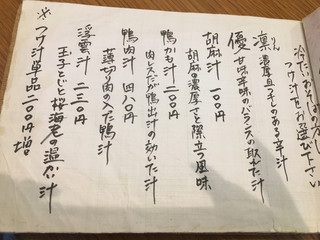 冷たいおそばの方は
つけ汁をお選び下さい
凛 りん 濃厚且つキレのある辛汁
優 甘味辛味のバランスの取れた汁
胡麻汁 一〇〇円
胡麻の濃厚さと際立つ風味
鴨かも汁 二〇〇円
肉レスだが鴨出汁の効いた汁
鴨肉汁 四八〇円
薄切り肉の入った鴨汁
浮雲汁 二三〇円
玉子とじと桜海老の温かい汁
※つけ汁単品 二〇〇円増